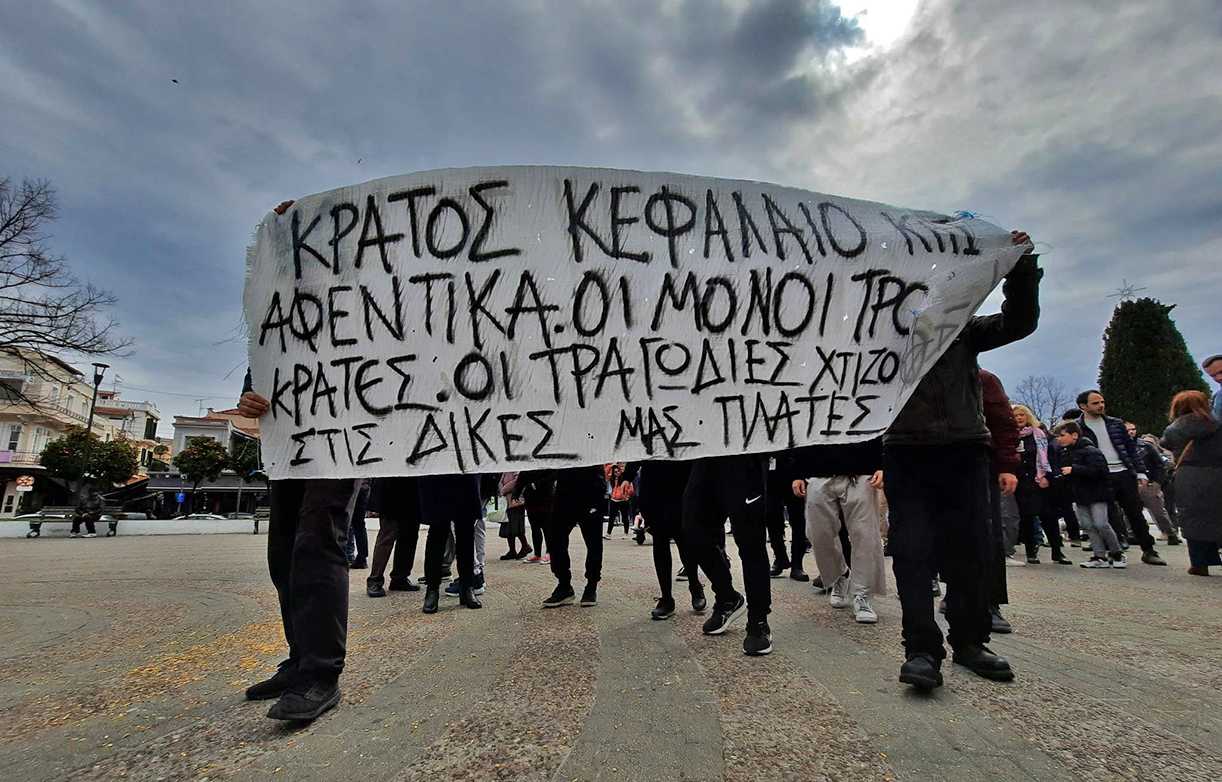 ΚΡΑΤΟΣ ΚΕΦΑΛΑΙΟ ΚΑΙ
ΑΦΕΝΤΙΚΑ. ΟΙ ΜΟΝΟΙ ΤΡΟ
ΚΡΑΤΕΣ. ΟΙ ΤΡΑΓΩΔΙΕΣ ΧΤΙΖΟ
ΣΤΙΣ ΔΙΚΕΣ ΜΑΣ ΠΛΑΤΕΣ